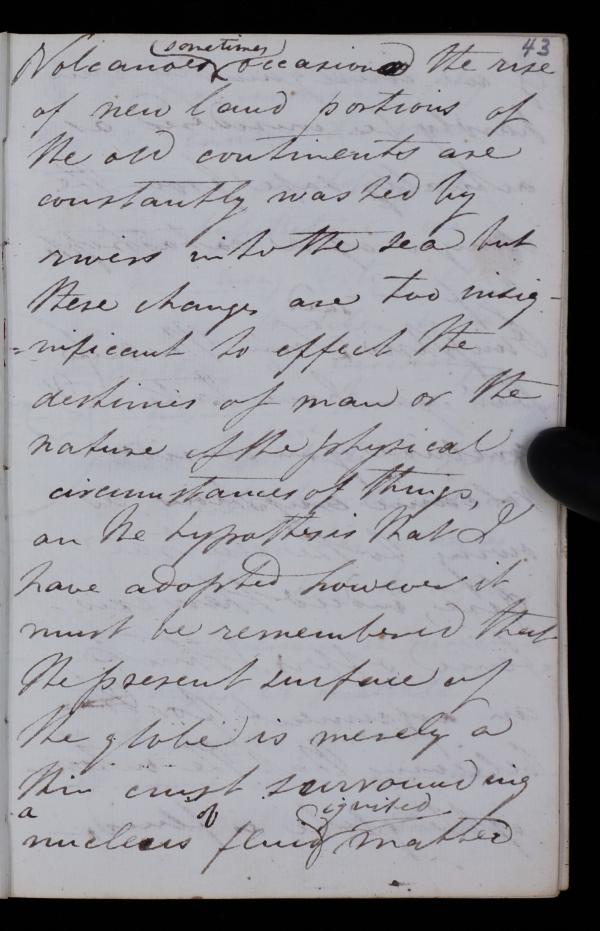 43
Volcanoes sometimes occasion the rise
of new land portions of
the old continents are
constantly washed by
rivers into the sea but
these changes are too insig-
=nificant to effect the
destinies of man or the
nature of the physical
circumstances of things,
on the hypothesis that I
have adopted however it
must be remembered that
the present surface of
the globe is merely a
thin crust surrounding
a nucleus of fluid ignited matter